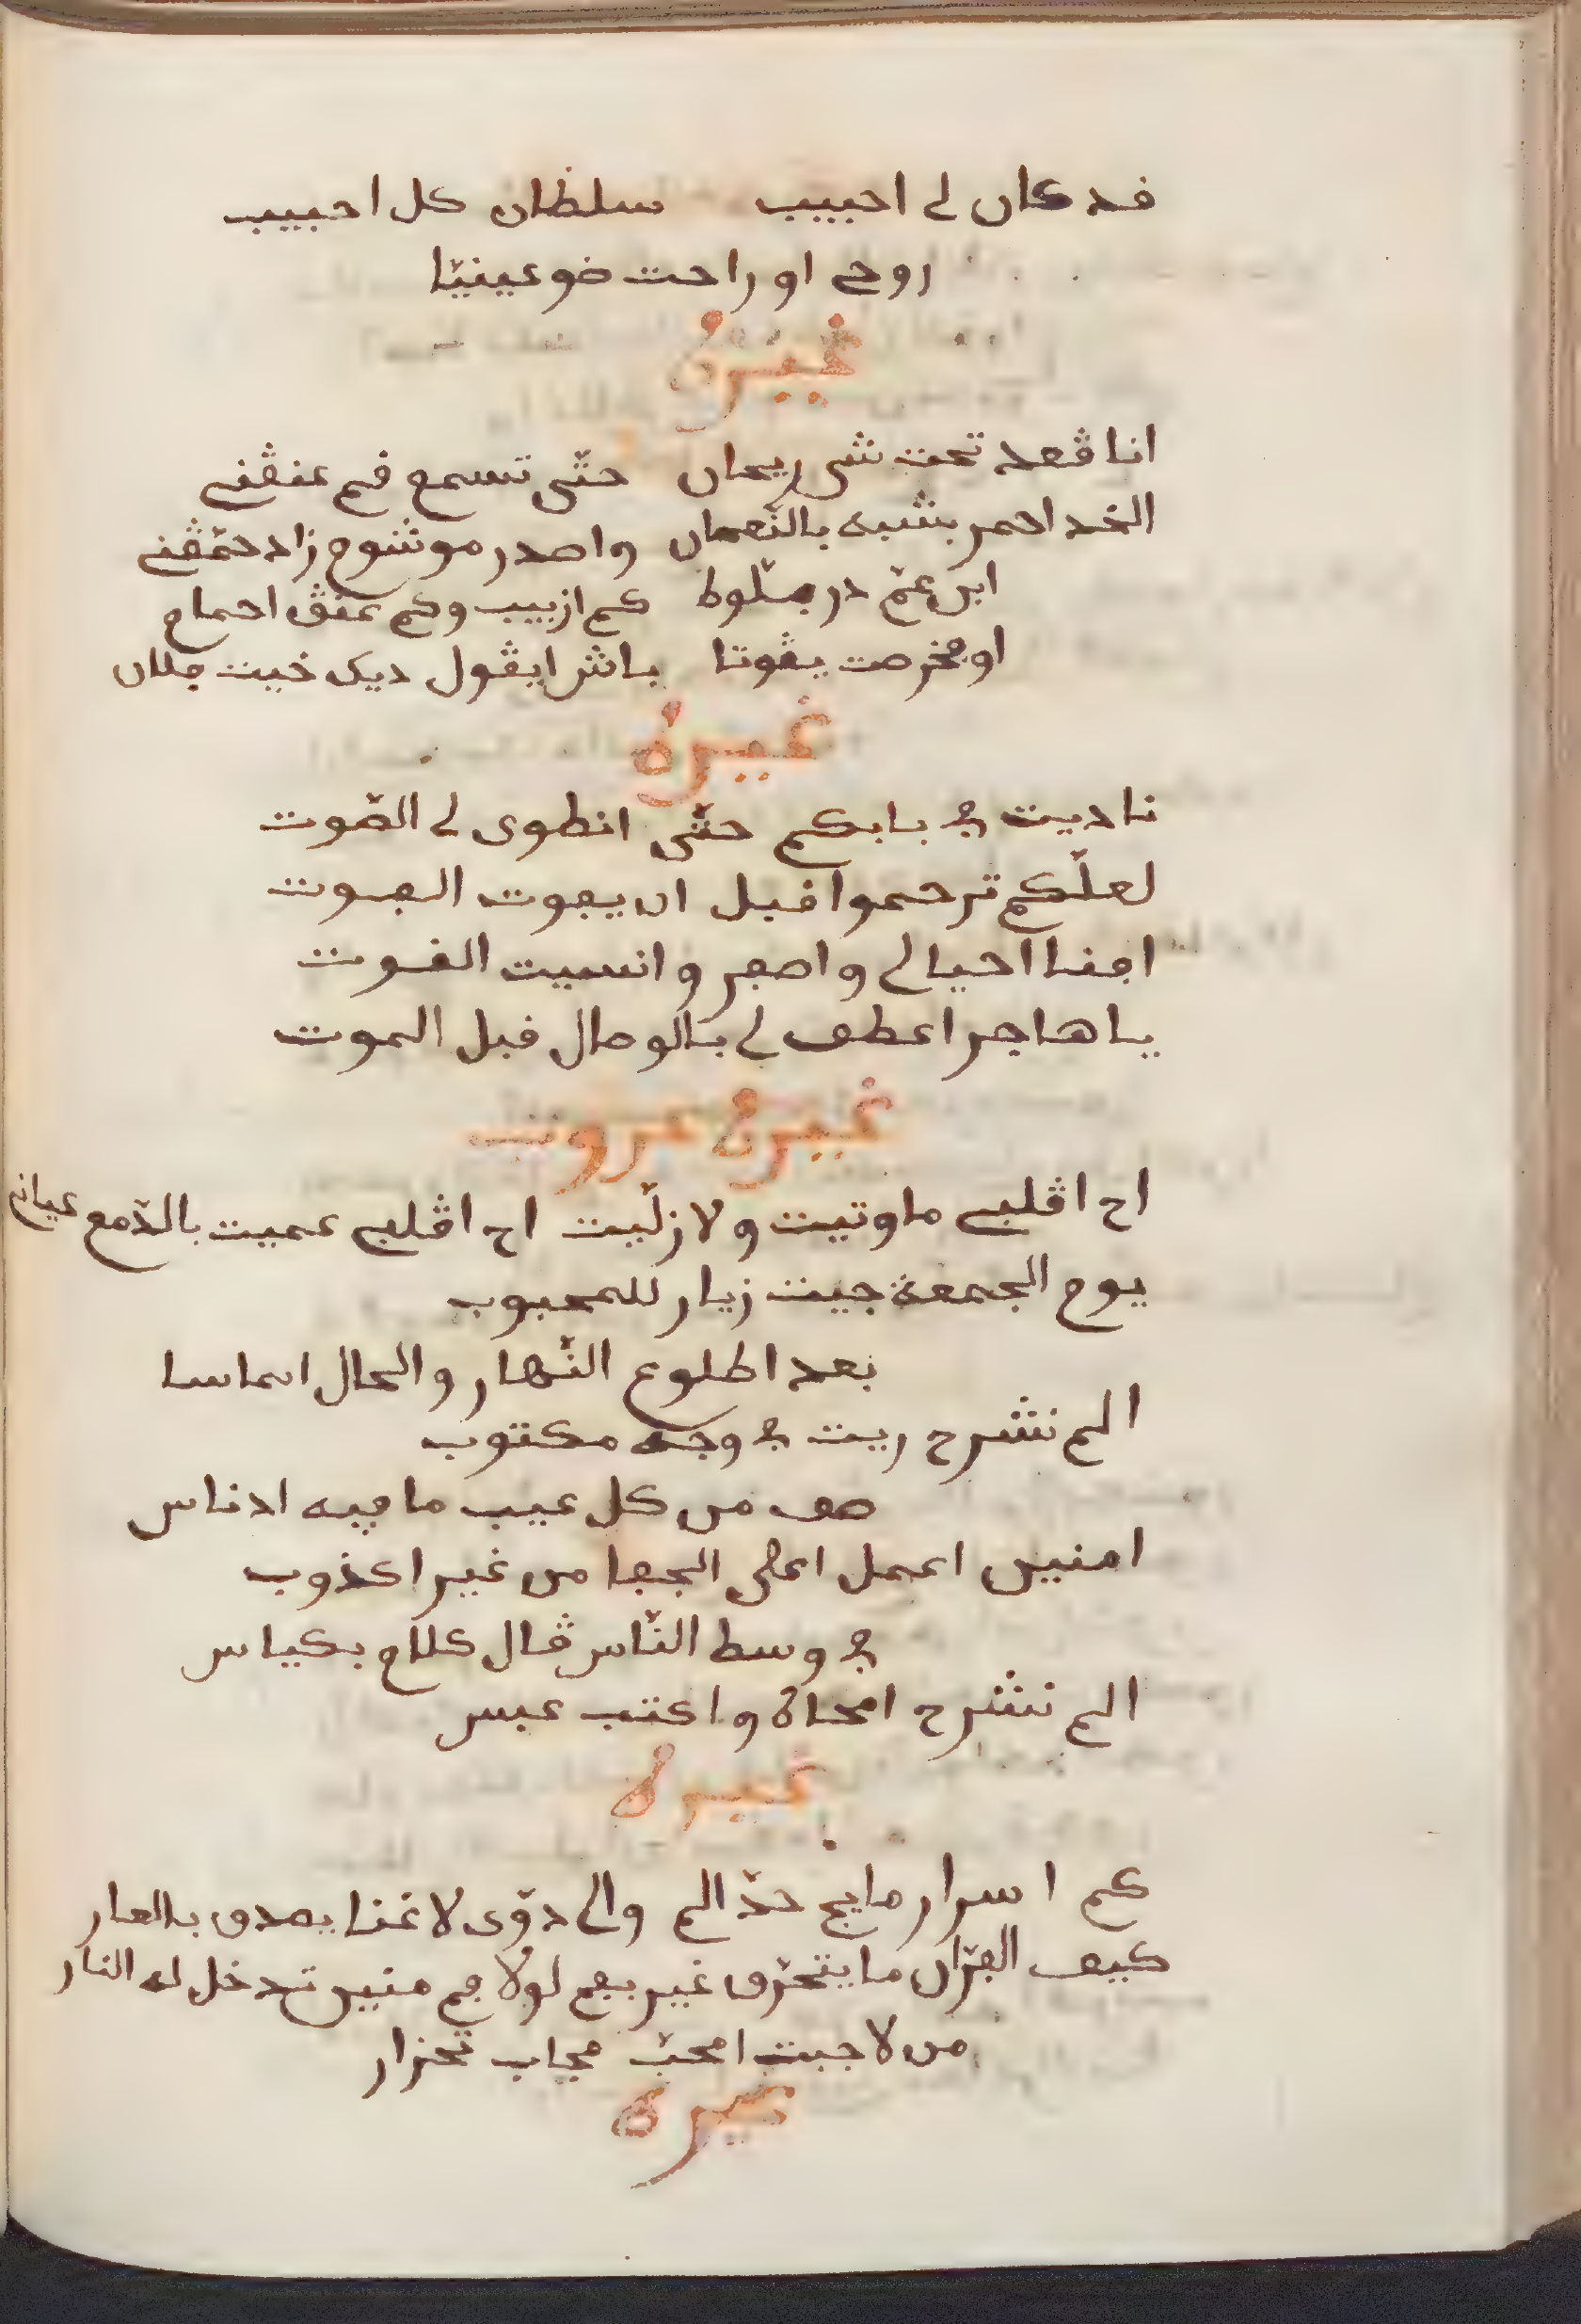 قد كان لي احبيب سلطان كل احبيب
روحي او راحت ضو عينيّا
غيره
انا ڨعد تحت شي ريحان حتّى تسمع فم عنڨني
الخد احمر يشبه بالنّعمان واصدر موشوم زاد حمّڨني
ابن عمّ در بلّوط كم ازبيب وكم عنڨ احمام
او مخرصت يڨوتا باش ايڨول ديك خيت فلان
غيره
ناديت في بابكم حتّى انطوى لي الصّوت
لعلّكم ترحموا قبل ان يفوت الفوت
افنا احيالي واصفر وانسيت القوت
يا هاجر اعطف لي بالوصال قبل الموت
غيره عروب
اح اڨلبي ماوتيت ولا زلّيت اح اڨلبي عميت بالدّمع عياني
يوم الجمعة جيت زيار للمحبوب
بعد اطلوع النّهار والحال امماسا
الم نشرح ريت في وجه مكتوب
صف من كل عيب ما فيه ادناس
امنين اعمل اعلى الجفا من غير اكذوب
في وسط النّاس ڨال كلام بكياس
الم نشرح امحاه واكتب عبس
غيره
كم اسرار مايج حدّ الم والي دوّى لا غنا يصدق بالعار
كيف الفرّان ما يتحرّق غير بفم لولا فم منين تدخل له النار
من لا جبت امحبّ مجاب تحزار
غيره